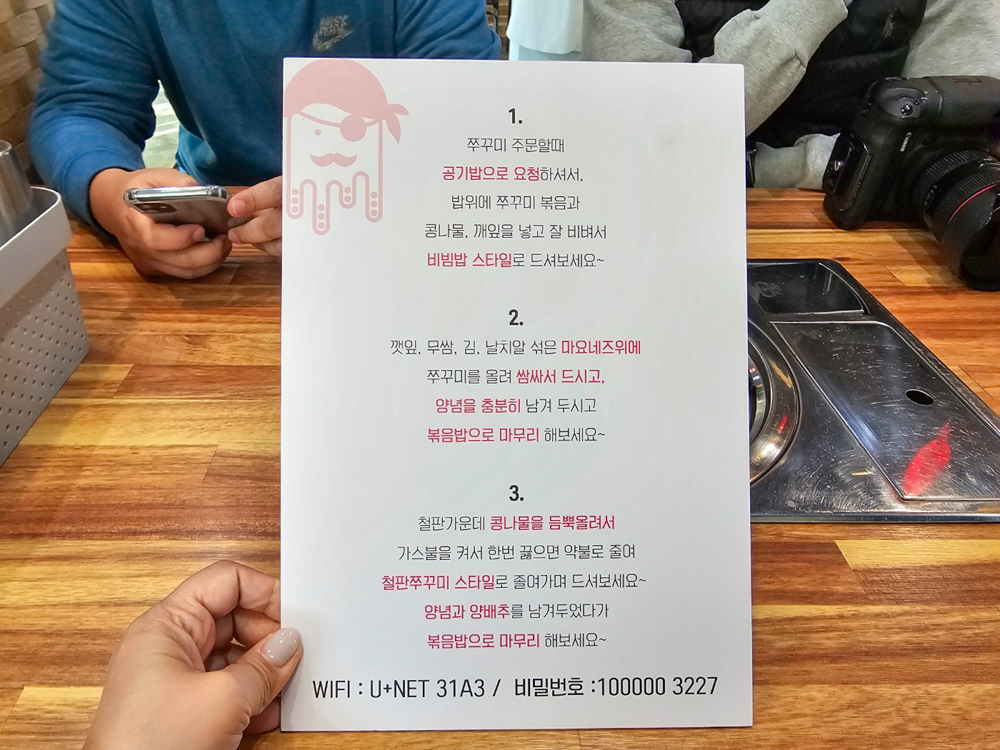 JUST DO IT
1.
쭈꾸미 주문할때
공기밥으로 요청하셔서,
밥위에 쭈꾸미 볶음과
콩나물, 깨잎을 넣고 잘 비벼서
비빔밥 스타일로 드셔보세요~
2.
깻잎, 무쌈, 김, 날치알 섞은 마요네즈위에
쭈꾸미를 올려 쌈싸서 드시고,
양념을 충분히 남겨 두시고
볶음밥으로 마무리 해보세요~
3.
철판가운데 콩나물을 듬뿍올려서
가스불을 켜서 한번 끓으면 약불로 줄여
철판쭈꾸미 스타일로 졸여가며 드셔보세요~
양념과 양배추를 남겨두었다가
볶음밥으로 마무리 해보세요~
WIFI : U+NET 31A3 / 비밀번호 :100000 3227
Canon